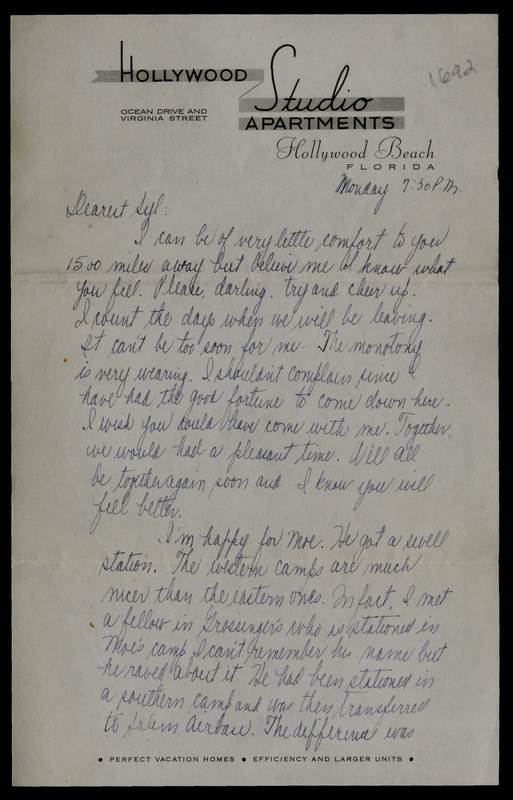 1692
HOLLYWOOD
Studio
OCEAN DRIVE AND
VIRGINIA STREET
APARTMENTS
Hollywood Beach
FLORIDA
Monday 7:30 P.M.
Dearest Syl:
I can be of very little comfort to you
1500 miles away but believe me I know what
you feel. Please, darling, try and cheer up.
I count the days when we will be leaving.
It can't be too soon for me. The monotony
is very wearing. I shouldn't complain since I
have had the good fortune to come down here.
I wish you could have come with me. Together,
we would had a pleasant time. We'll all
be together again soon and I know you will
feel better.
I'm happy for Moe. He got a swell
station. The western camps are much
nicer than the eastern ones. In fact, I met
a fellow in Grossinger's who is stationed in
Moe's camp. I can't remember his name but
he raved about it. He had been stationed in
a southern camp and was then transferred
to Salem Airbase. The difference was
• PERFECT VACATION HOMES • EFFICIENCY AND LARGER UNITS •